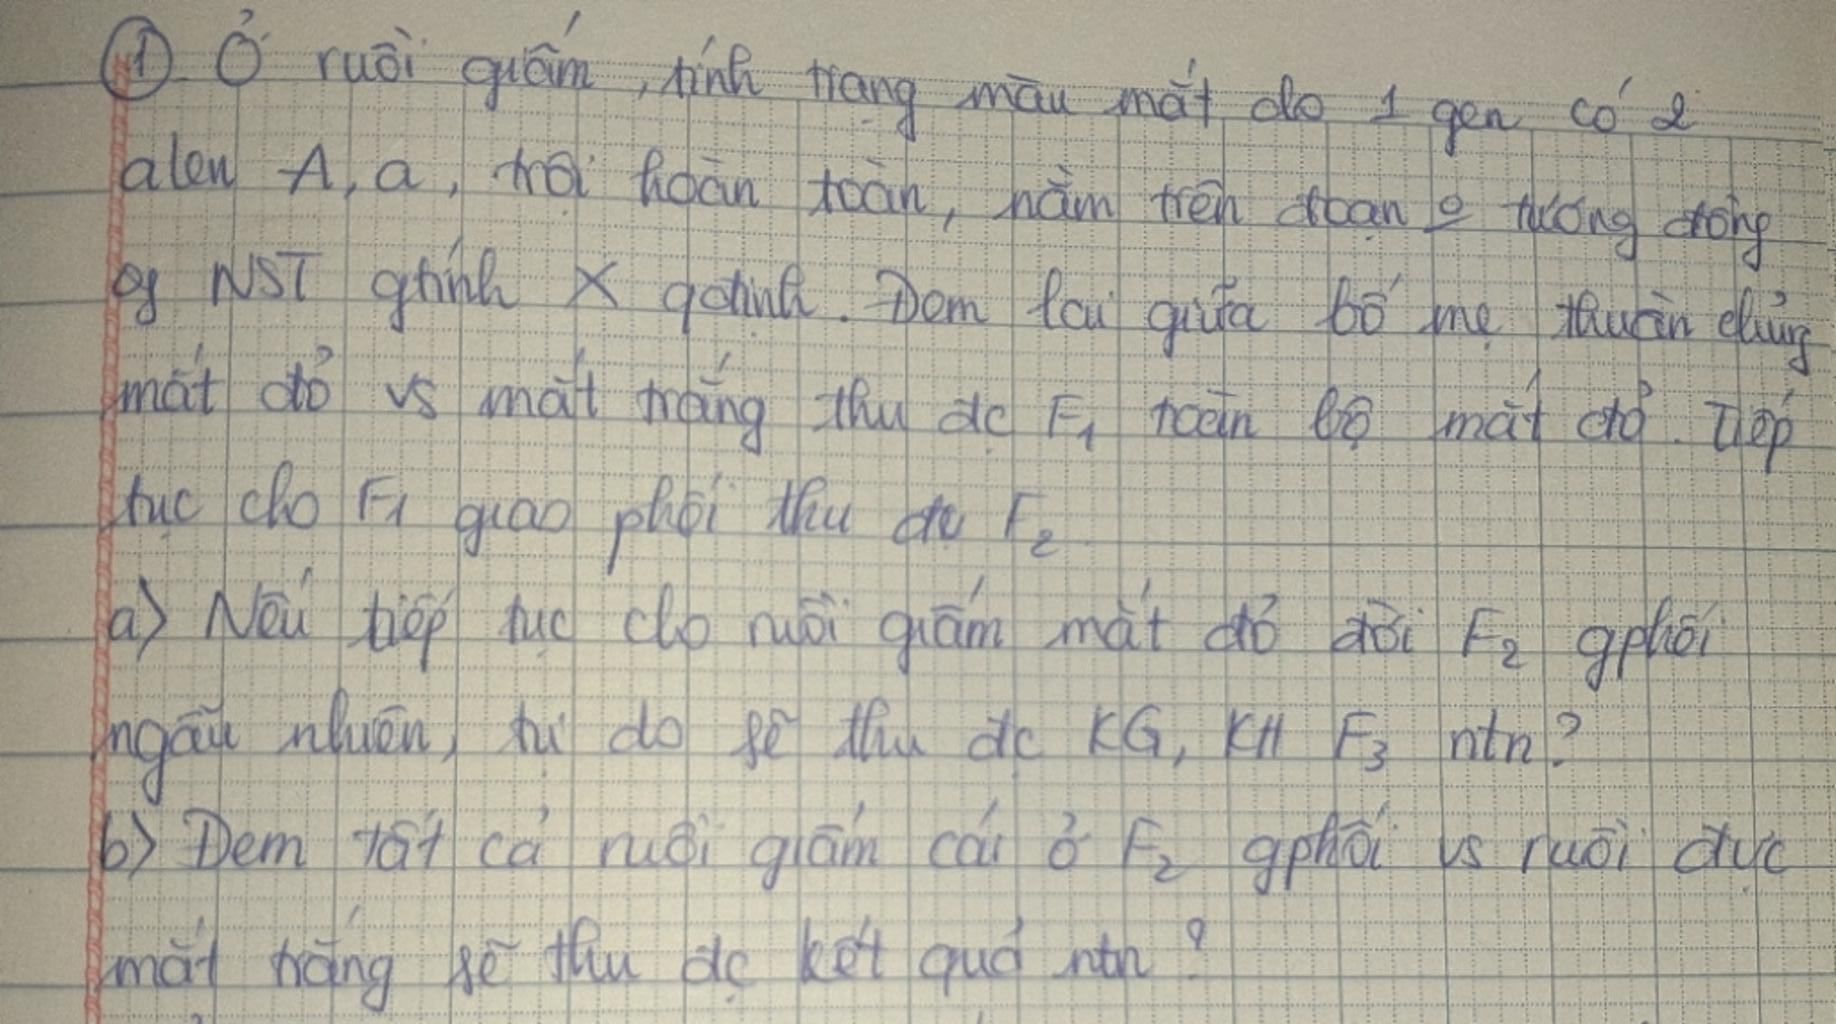 ① Ở ruồi giấm, tính trạng màu mắt do 1 gen có 2
alen A, a, trội hoàn toàn, nằm trên đoạn o tương đồng
of NST gtính X qđịnh. Đem lai giữa bố mẹ thuần chủng
mắt đỏ vs mắt trắng thu đc F₁ toàn bộ mắt đỏ. Tiếp
tục cho F₁ giao phối thu đc F₂
a) Nếu tiếp tục cho ruồi giấm mắt đỏ đời F₂ gphối
ngẫu nhiên, tự do sẽ thu đc KG, KH F₃ ntn?
b) Đem tất cả ruồi giấm cái ở F₂ gphối vs ruồi đực
mắt trắng sẽ thu đc kết quả ntn?